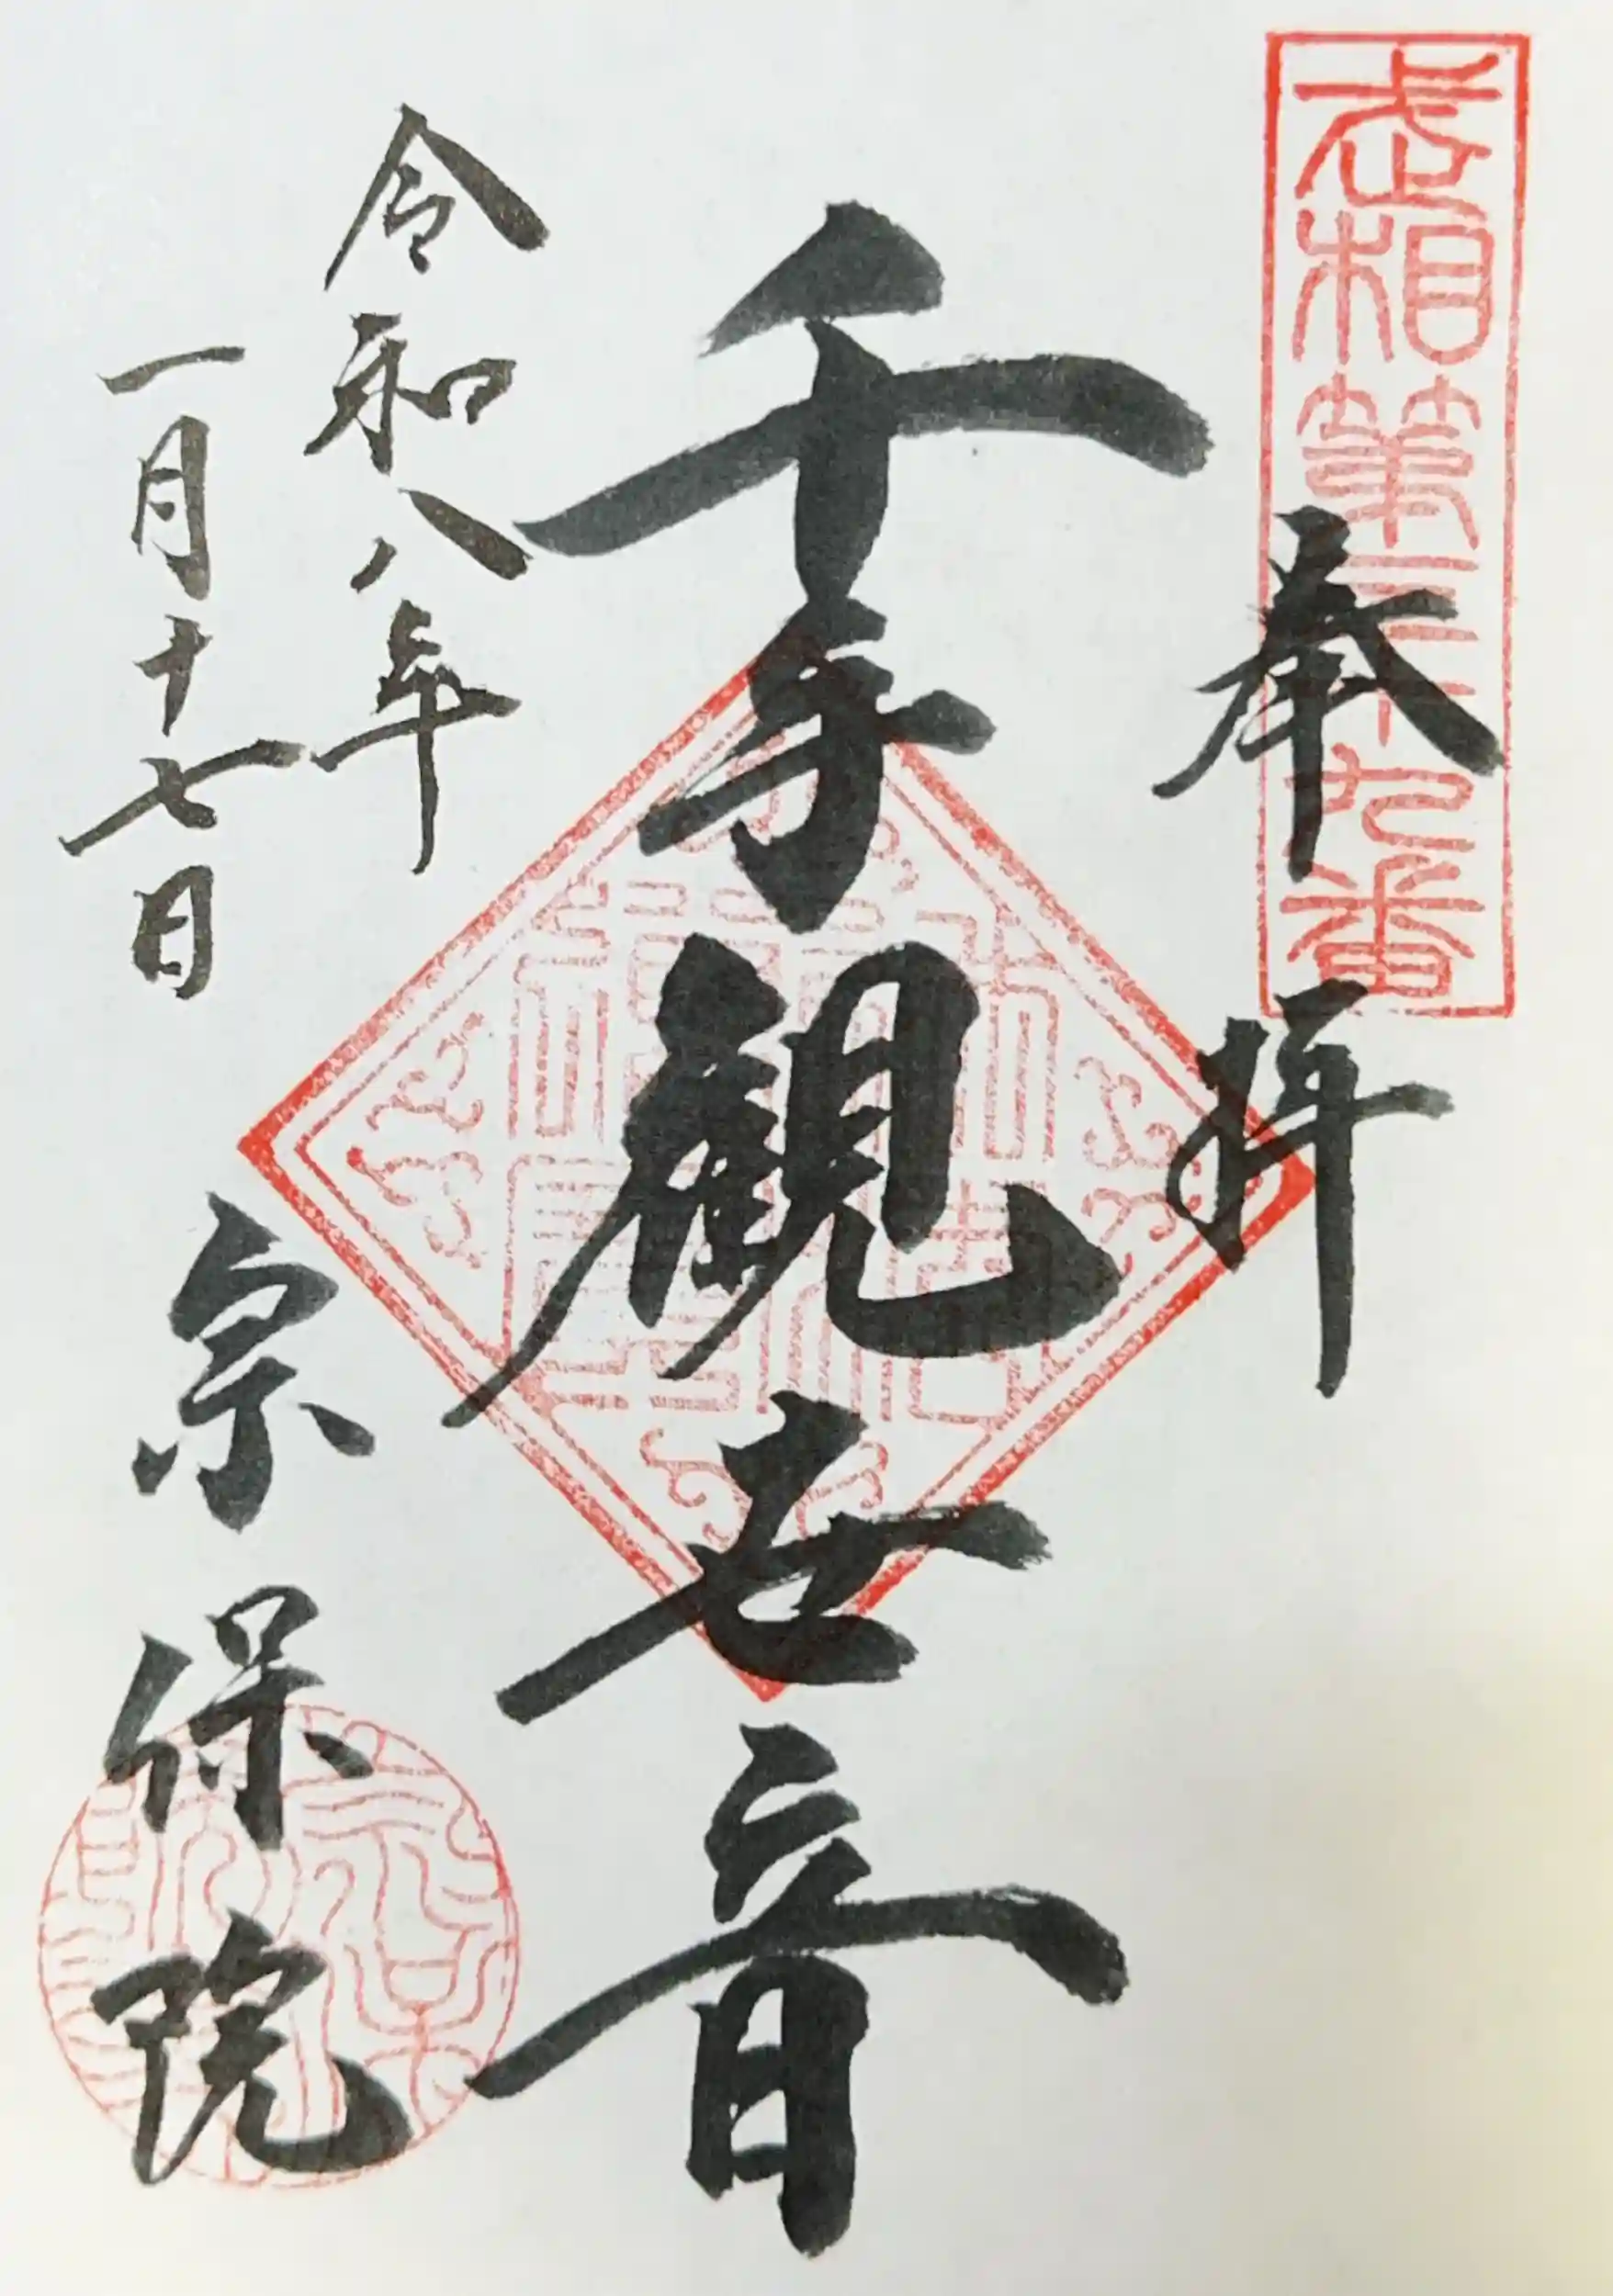 武相第三十九番
奉拝
千手観世音
令和八年
一月十七日
宗保院